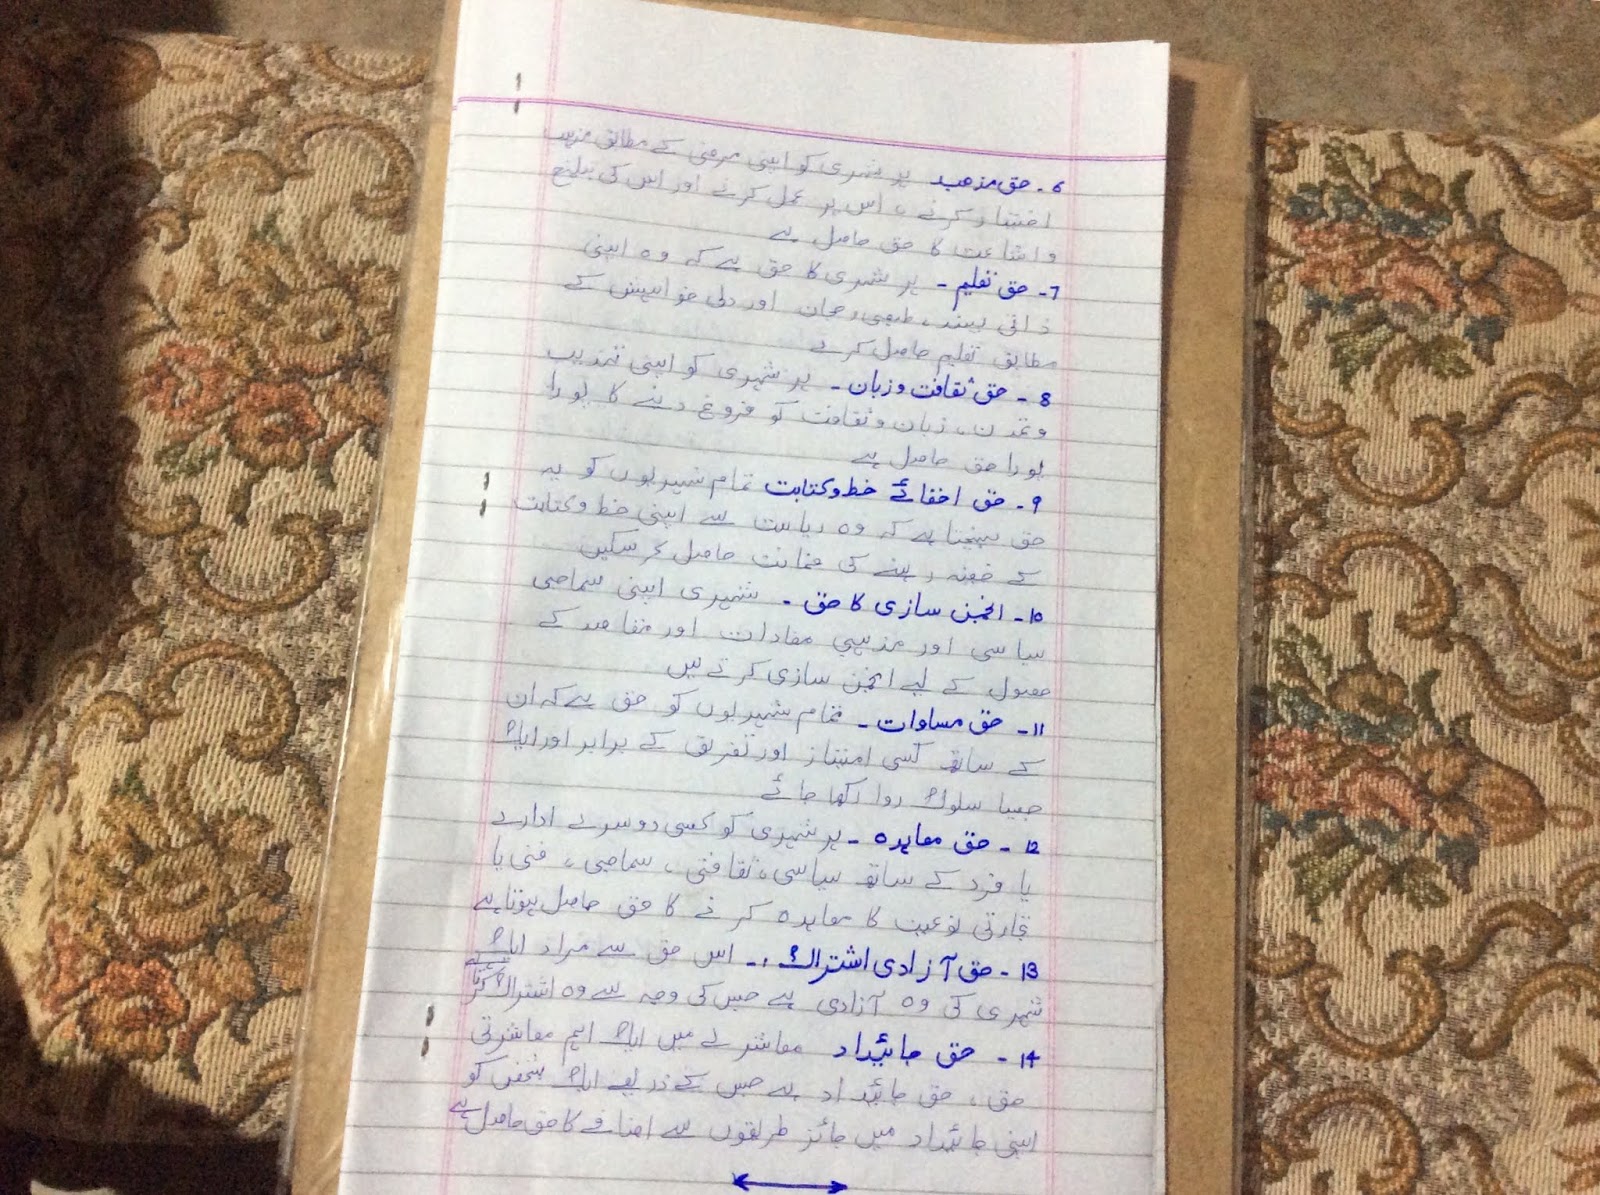 6۔ حق مذھب ہر شہری کو اپنی مرضی کے مطابق مذہب
اختیار کرنے ، اس پر عمل کرنے اور اس کی تبلیغ
و اشاعت کا حق حاصل ہے
7۔ حق تعلیم ۔ ہر شہری کا حق ہے کہ وہ اپنی
ذاتی پسند ، طبعی رجحان اور دلی خواہش کے
مطابق تعلیم حاصل کرے
8 ۔ حق ثقافت و زبان ۔ ہر شہری کو اپنی تہذیب
و تمدن ، زبان و ثقافت کو فروغ دینے کا پورا
پورا حق حاصل ہے
9۔ حق اخفائے خط و کتابت تمام شہریوں کو یہ
حق پہنچتا ہے کہ وہ ریاست سے اپنی خط و کتابت
کے خفیہ رہنے کی ضمانت حاصل کر سکیں
10۔ انجمن سازی کا حق ۔ شہری اپنی سماجی
سیاسی اور مذہبی مفادات اور مقاصد کے
حصول کے لیے انجمن سازی کرتے ہیں
11۔ حق مساوات ۔ تمام شہریوں کو حق ہے کہ ان
کے ساتھ کسی امتیاز اور تفریق کے برابر اور ایک
جیسا سلوک روا رکھا جائے
12 ۔ حق معاہدہ ۔ ہر شہری کو کسی دوسرے ادارے
یا فرد کے ساتھ سیاسی ، ثقافتی ، سماجی ، فنی یا
تجارتی نوعیت کا معاہدہ کرنے کا حق حاصل ہوتا ہے
13 ۔ حق آزادی اشتراک :۔ اس حق سے مراد ایک
شہری کی وہ آزادی ہے جس کی وجہ سے وہ اشتراک
14 ۔ حق جائیداد معاشرے میں ایک اہم معاشرتی
حق ، حق جائیداد ہے جس کے ذریعے ایک شخص کو
اپنی جائیداد میں جائز طریقوں سے اضافے کا حق حاصل ہے